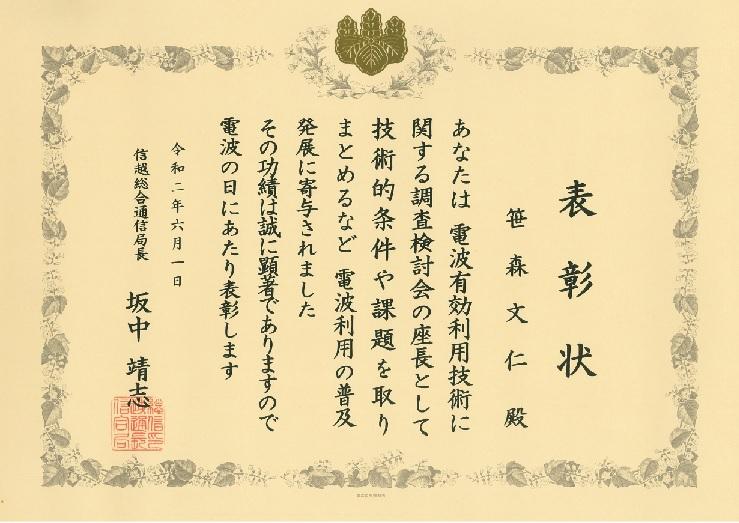 表彰状
笹森文仁 殿
あなたは 電波有効利用技術に
関する調査検討会の座長として
技術的条件や課題を取り
まとめるなど 電波利用の普及
発展に寄与されました
その功績は誠に顕著でありますので
電波の日にあたり表彰します
令和二年六月一日
信越総合通信局長
坂中 靖志